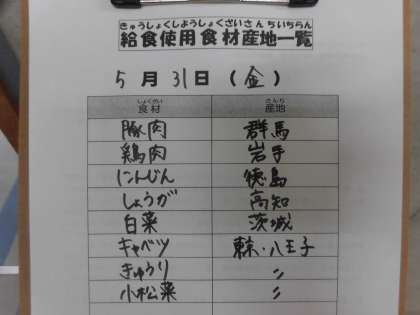 きゅうしょくしようしょくざいさんちいちらん
給食使用食材産地一覧
5月31日(金)
しょくざい さんち
食材 産地
豚肉 群馬
鶏肉 岩手
にんじん 徳島
しょうが 高知
白菜 茨城
キャベツ 東京・八王子
きゅうり 〃
小松菜 〃